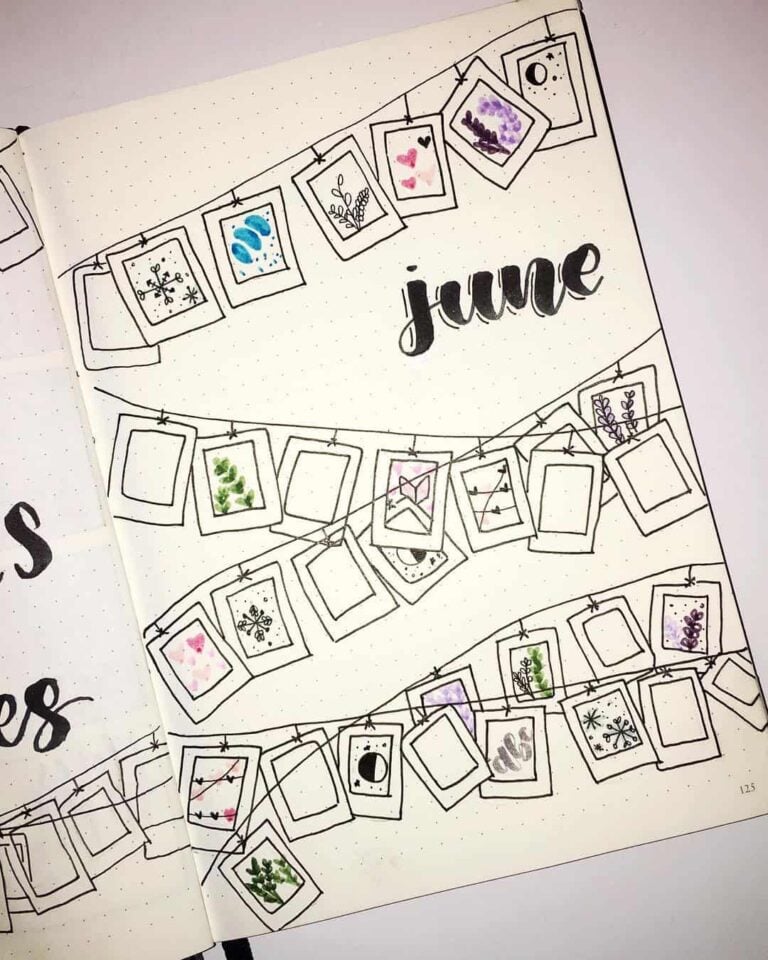 june
s
es
125